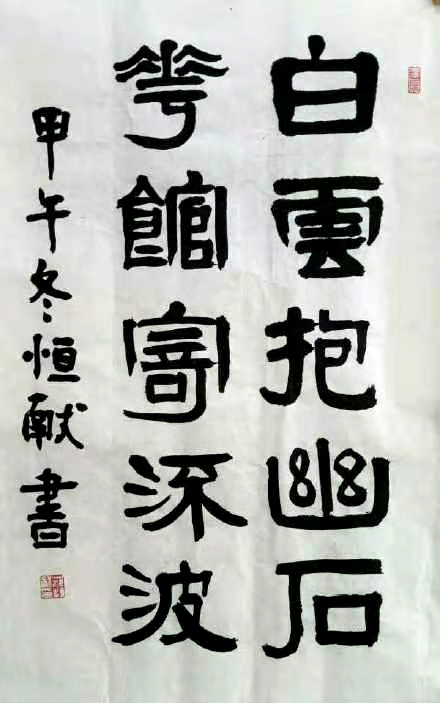 白雲抱幽石
華館寄流波
甲午冬恒献書